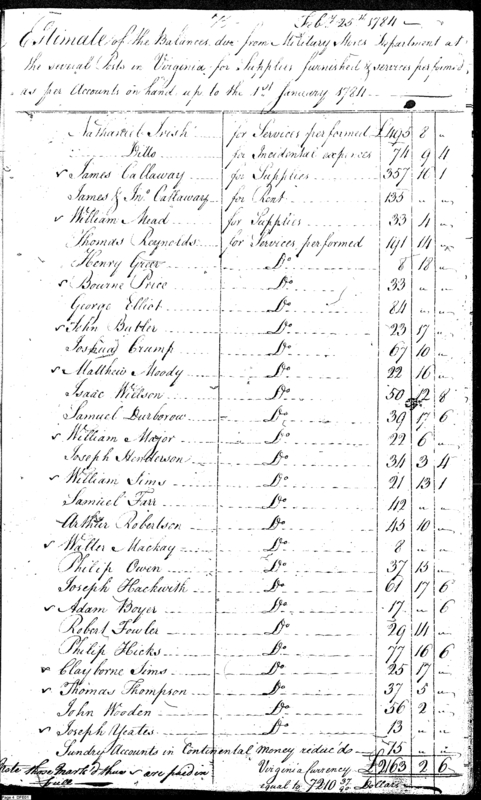 Feby 25th 1784
Estimate of the Balances due from Military Stores Department at
the several Posts in Virginia for Supplies furnished & services performed,
as per Accounts on hand up to the 1st January 1784
Nathaniel Irish for Services performed £495 8 "
Ditto for Incidental expences 74 9 4
✓ James Callaway for Supplies 357 10 1
James & Jno Callaway for Rent 135 " "
✓ William Mead for Supplies 33 4 "
Thomas Reynolds for Services performed 191 14 "
Henry Greer Do 8 18 "
✓ Bourne Price Do 33 " "
George Elliot Do 84 " "
✓ John Butler Do 23 17 "
Crump Do 67 10 "
✓ Matthew Moody Do 22 16 "
Isaac Willson Do 50 12 8
Samuel Durborow Do 39 17 6
✓ William Major Do 22 6 "
Joseph Henderson Do 34 3 4
✓ William Sims Do 21 13 1
Samuel Farr Do 42 " "
Arthur Robertson Do 45 10 "
✓ Walter Mackay Do 8 " "
Philip Owen Do 37 15 "
Joseph Hackwith Do 61 17 6
✓ Adam Boyer Do 17 " 6
Robert Fowler Do 29 14 "
Philip Hicks Do 77 16 6
✓ Clayborne Sims Do 25 17 "
✓ Thomas Thompson Do 37 5 "
John Wooden Do 56 2 "
✓ Joseph Yeates Do 13 " "
Sundry Accounts in Continental money reduc'd 15 " "
Virginia Currency £2163 2 6
Note those Mark'd thus ✓ are paid in full
equal to 7210 37/90 Dollars